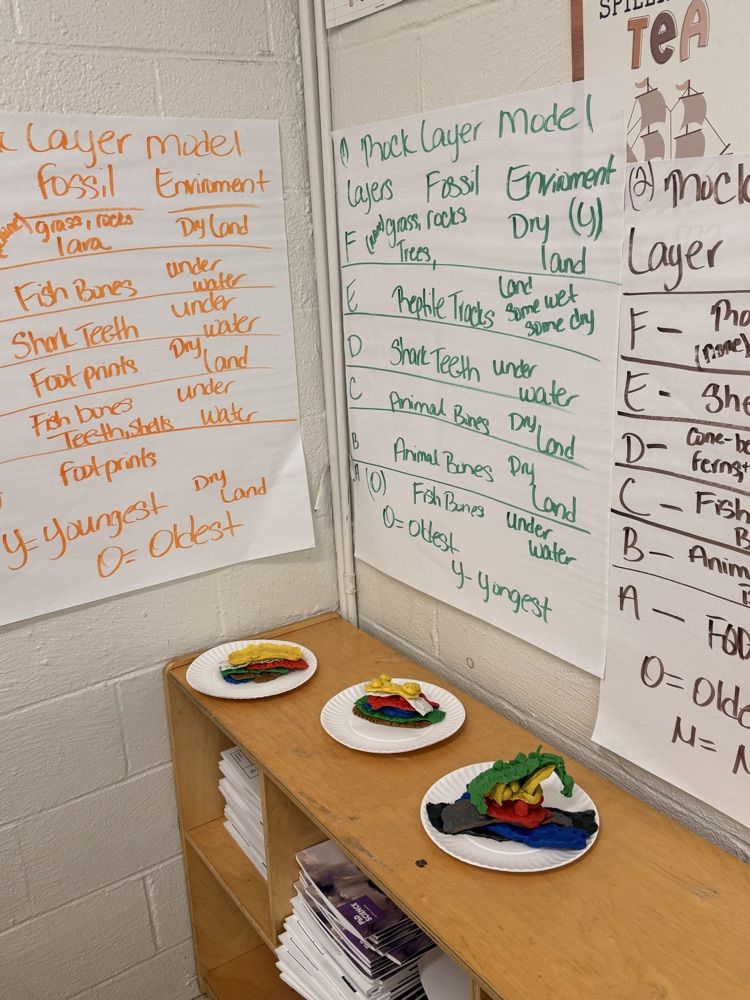 k Layer Model
Fossil Enviroment
grass, rocks Dry Land
lava
Fish Bones under water
Shark Teeth under water
Foot prints Dry Land
Fish bones under
Teeth, shells water
footprints Dry Land
Y= Youngest
O= Oldest
(1) Mock Layer Model
Layers Fossil Enviroment
F (none) grass, rocks Dry (Y)
Trees, land
E Reptile Tracks Land some wet some dry
D Shark Teeth under water
C Animal Bones Dry Land
B Animal Bones Dry Land
A (O) Fish Bones under water
O= Oldest
Y- Yongest
SPILL
TEA
(2) Mock
Layer
F -
(none)
E- She
D- Cone-be
ferns,
C - Fish
B
B - Anim
A - Foo
O= Olde
PhD SCIENCE